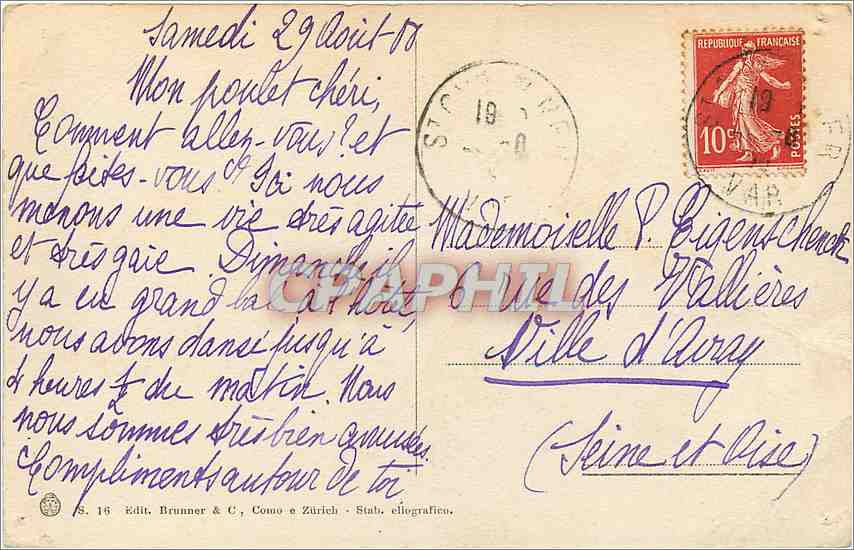 Samedi 29 Août 08
Mon poulet chéri,
Comment allez-vous? et
que faites-vous? Ici nous
menons une vie très agitée
et très gaie. Dimanche il
y a eu grand bal à l'hôtel,
nous avons dansé jusqu'à
4 heures ½ du matin. Nous
nous sommes très bien amusées.
Compliments autour de toi
S. 16 Edit. Brunner & C., Como e Zürich - Stab. eliografico.
REPUBLIQUE FRANÇAISE
10c
POSTES
19
VAR
19
CPAPHIL
Mademoiselle P. Eigenschenck
6 rue des Vallières
Ville d'Avray
(Seine et Oise)